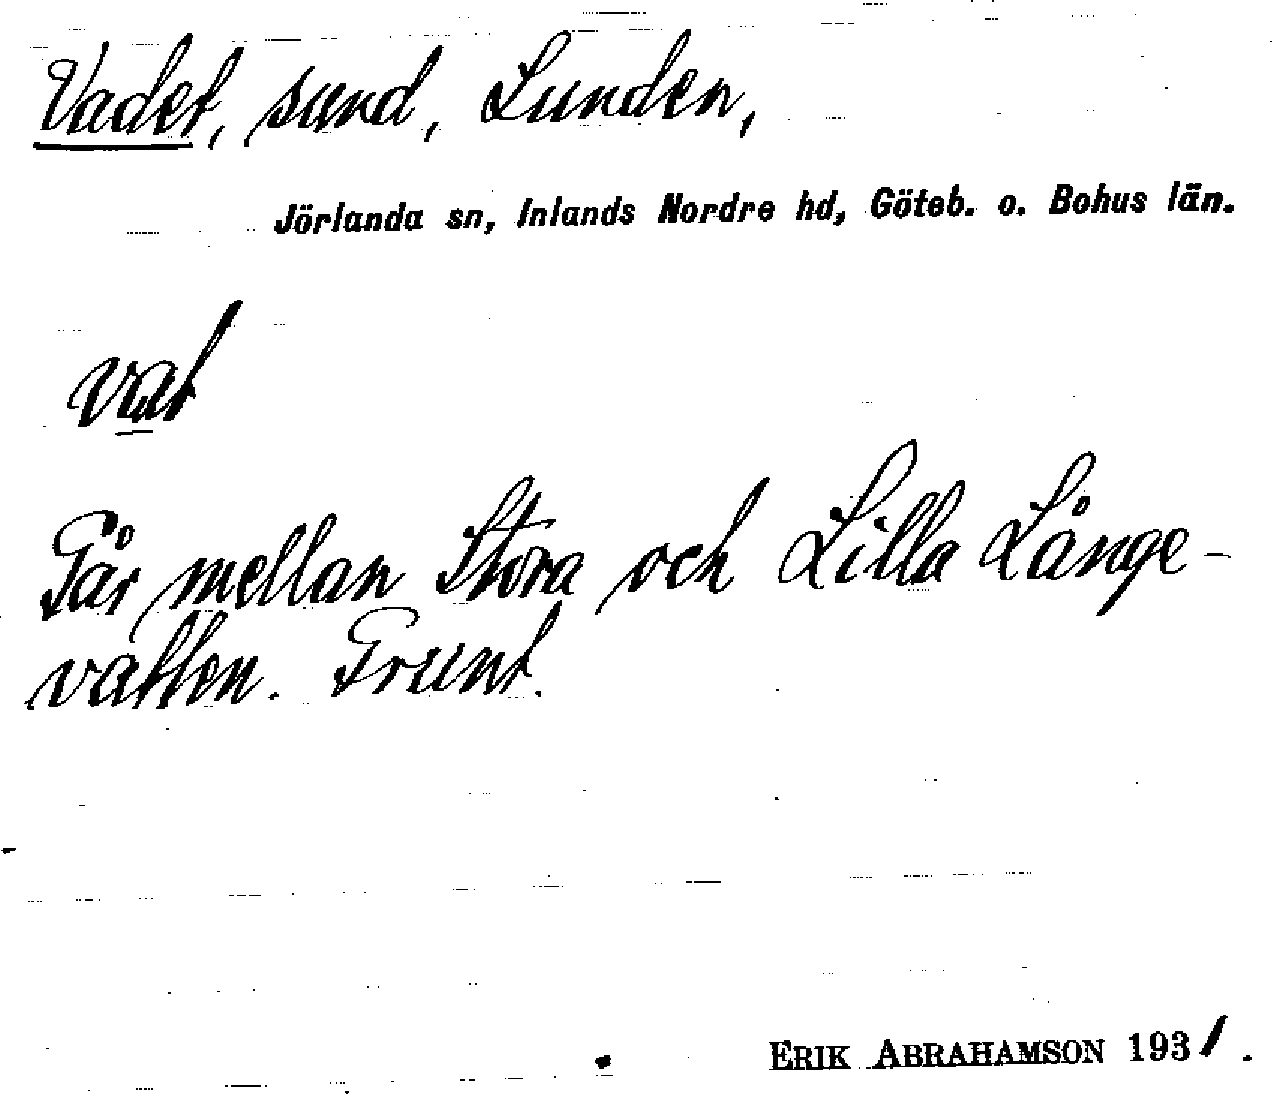 Vadet, sund, Lunden,
Jörlanda sn, Inlands Nordre hd, Göteb. o. Bohus län.
vat
Går mellan Stora och Lilla Långe-
vatten. Grunt.
ERIK ABRAHAMSON 1931.